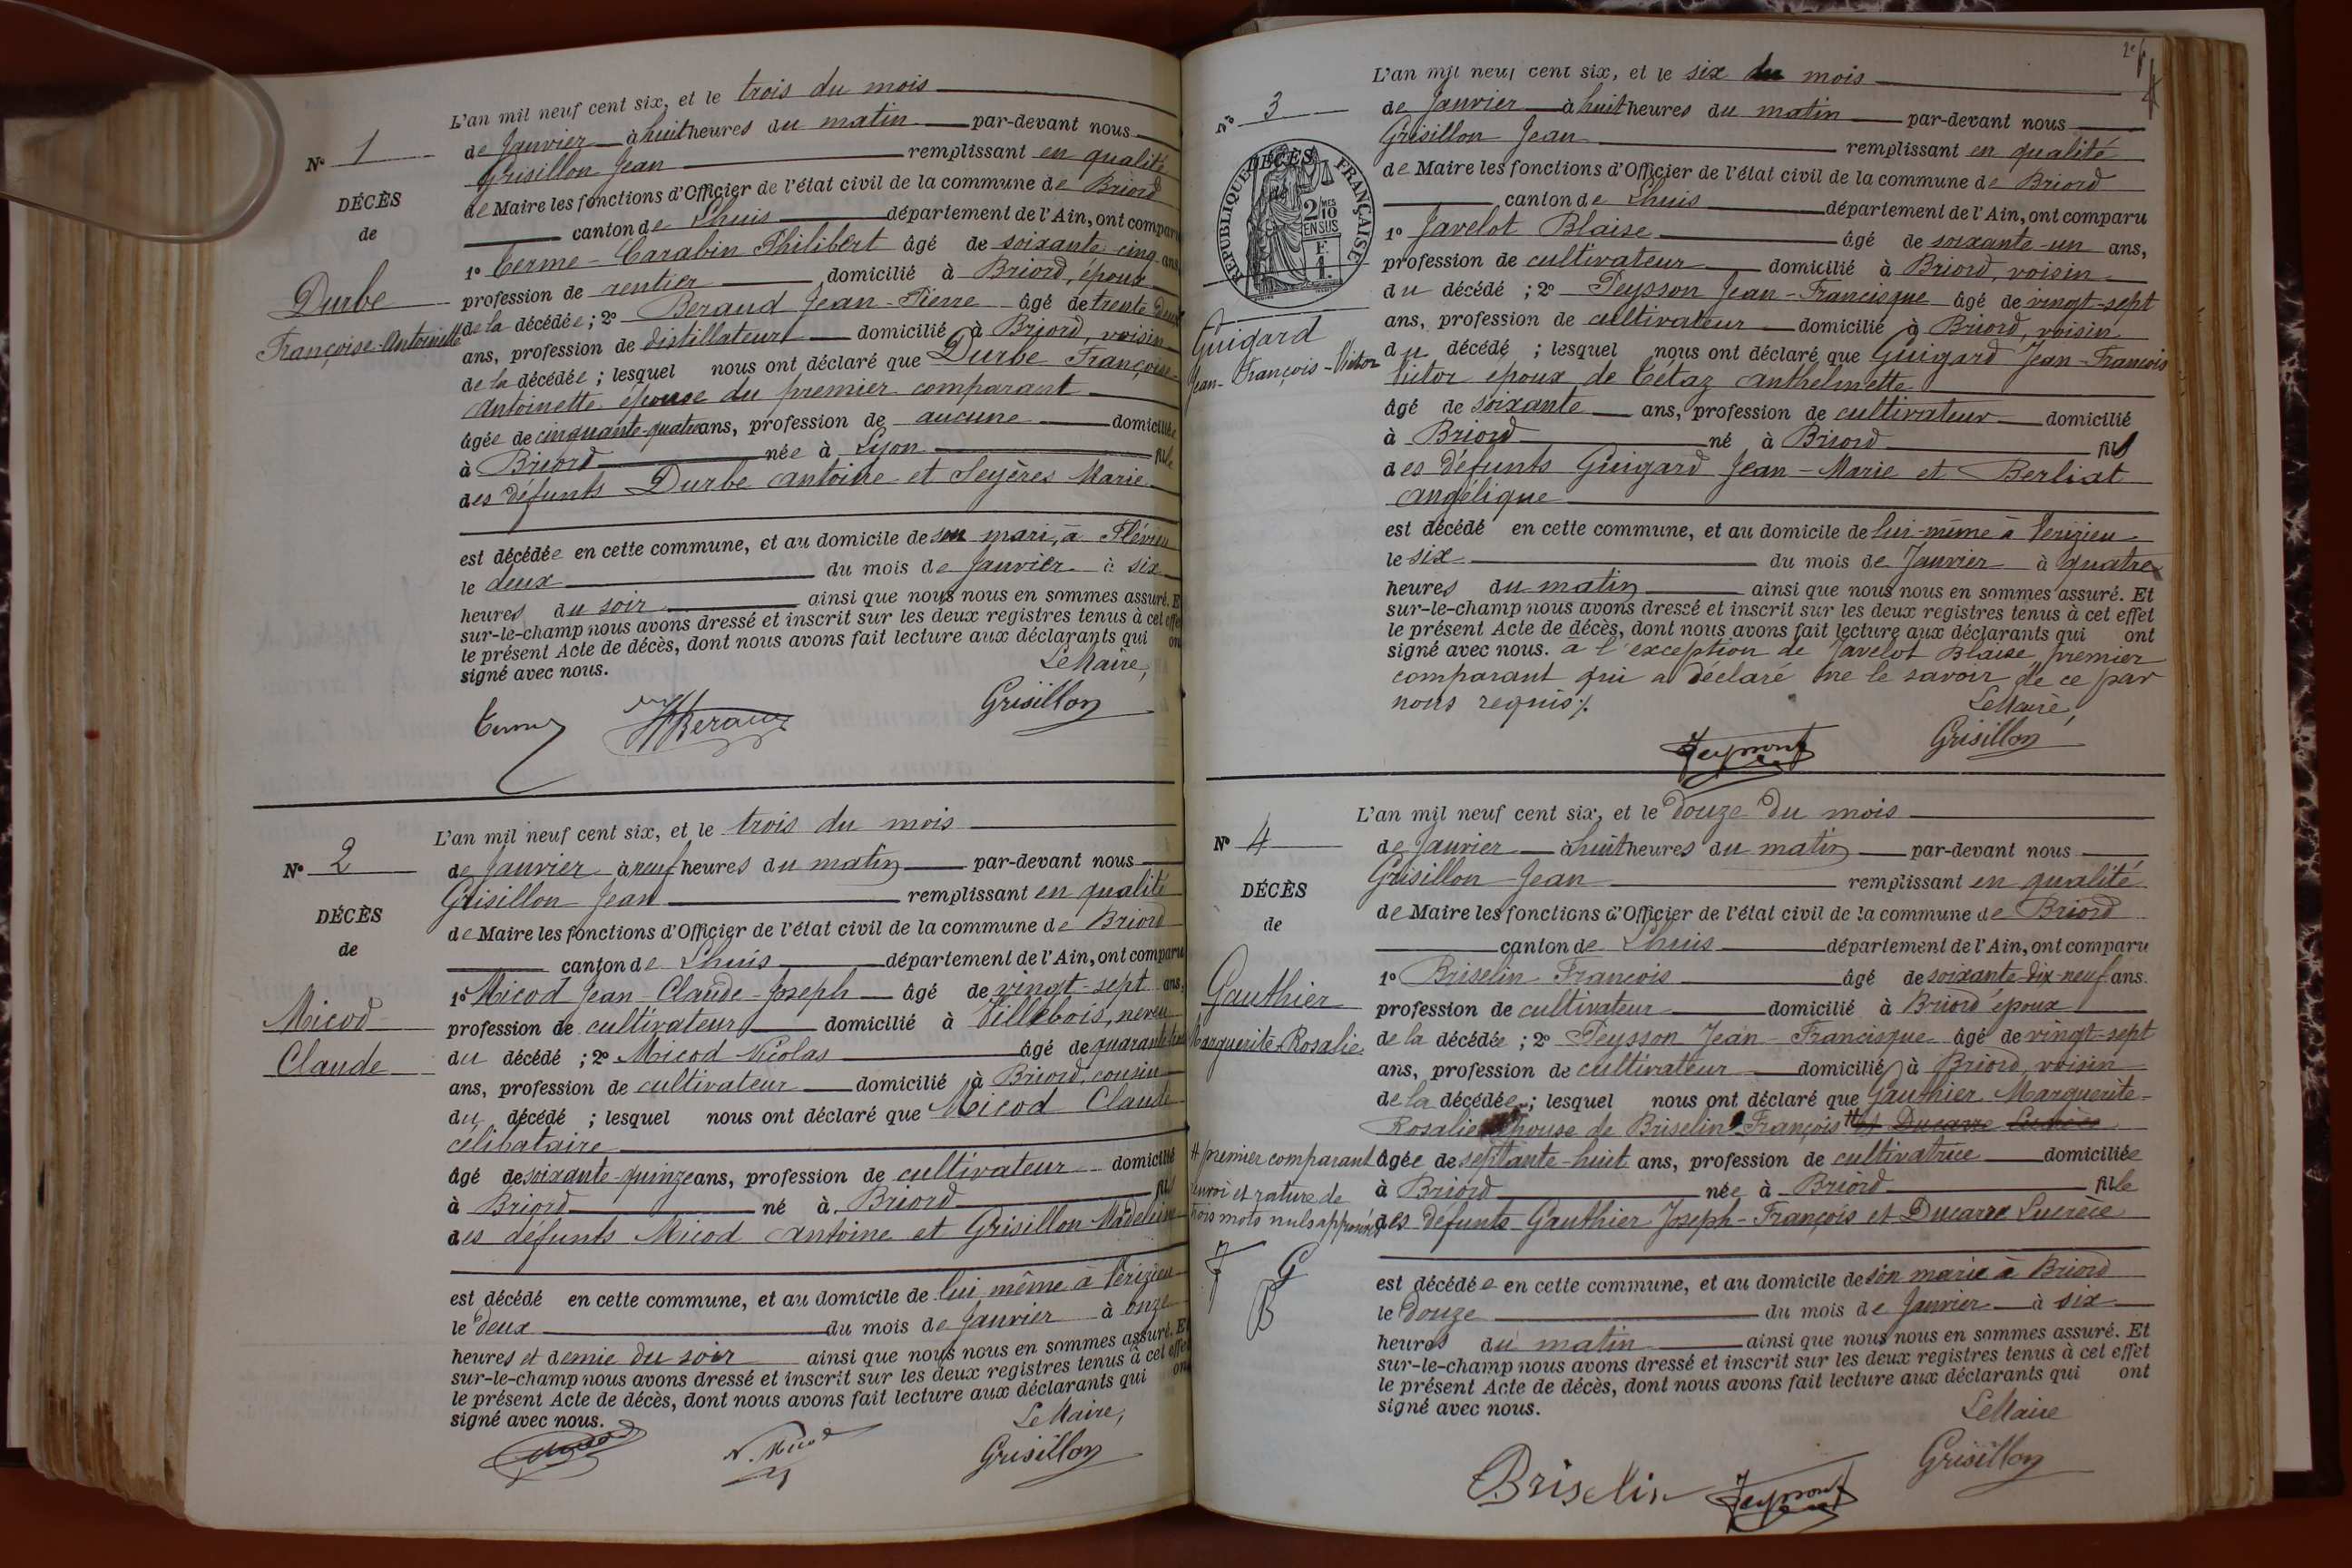 N° 1
DÉCÈS
de
Durbe
Françoise-Antoinette
L'an mil neuf cent six, et le trois du mois
de Janvier à huit heures du matin par-devant nous
Grisillon Jean remplissant en qualité
de Maire les fonctions d'Officier de l'état civil de la commune de Briord
canton de Lhuis département de l'Ain, ont comparu
1° Terme-Carabin Philibert âgé de soixante cinq ans,
profession de rentier domicilié à Briord, époux
de la décédée ; 2° Beraud Jean-Pierre âgé de trente deux
ans, profession de distillateur domicilié à Briord, voisin
de la décédée ; lesquel nous ont déclaré que Durbe Françoise
Antoinette épouse du premier comparant
âgée de cinquante-quatre ans, profession de aucune domiciliée
à Briord née à Lyon fille
des défunts Durbe Antoine et Seyères Marie
est décédée en cette commune, et au domicile de son mari, à Flévieu
le deux du mois de Janvier à six
heures du soir ainsi que nous nous en sommes assuré. Et
sur-le-champ nous avons dressé et inscrit sur les deux registres tenus à cet effet
le présent Acte de décès, dont nous avons fait lecture aux déclarants qui ont
signé avec nous.
Le Maire,
Terme Beraud Grisillon
N° 2
DÉCÈS
de
Micod
Claude
L'an mil neuf cent six, et le trois du mois
de Janvier à neuf heures du matin par-devant nous
Grisillon Jean remplissant en qualité
de Maire les fonctions d'Officier de l'état civil de la commune de Briord
canton de Lhuis département de l'Ain, ont comparu
1° Micod Jean-Claude-Joseph âgé de vingt-sept ans,
profession de cultivateur domicilié à Villebois, neveu
du décédé ; 2° Micod Nicolas âgé de quarante
ans, profession de cultivateur domicilié à Briord, cousin
du décédé ; lesquel nous ont déclaré que Micod Claude
célibataire
âgé de soixante-quinze ans, profession de cultivateur domicilié
à Briord né à Briord fils
des défunts Micod Antoine et Grisillon Madeleine
est décédé en cette commune, et au domicile de lui même à Vérizieu
le deux du mois de Janvier à onze
heures et demie du soir ainsi que nous nous en sommes assuré. Et
sur-le-champ nous avons dressé et inscrit sur les deux registres tenus à cet effet
le présent Acte de décès, dont nous avons fait lecture aux déclarants qui ont
signé avec nous.
Le Maire,
Micod N. Micod Grisillon
N° 3
DÉCÈS
RÉPUBLIQUE FRANÇAISE
2/10 MES
EN SUS
F.
1.
Guigard
Jean-François-Victor
L'an mil neuf cent six, et le six du mois
de Janvier à huit heures du matin par-devant nous
Grisillon Jean remplissant en qualité
de Maire les fonctions d'Officier de l'état civil de la commune de Briord
canton de Lhuis département de l'Ain, ont comparu
1° Javelot Blaise âgé de soixante-un ans,
profession de cultivateur domicilié à Briord, voisin
du décédé ; 2° Peysson Jean-Francisque âgé de vingt-sept
ans, profession de cultivateur domicilié à Briord, voisin
du décédé ; lesquel nous ont déclaré que Guigard Jean-François
Victor époux de Cétaz Anthelmette
âgé de soixante ans, profession de cultivateur domicilié
à Briord né à Briord fils
des défunts Guigard Jean-Marie et Berliat
Angélique
est décédé en cette commune, et au domicile de lui-même à Vérizieu
le six du mois de Janvier à quatre
heures du matin ainsi que nous nous en sommes assuré. Et
sur-le-champ nous avons dressé et inscrit sur les deux registres tenus à cet effet
le présent Acte de décès, dont nous avons fait lecture aux déclarants qui ont
signé avec nous. à l'exception de Javelot Blaise, premier
comparant qui a déclaré ne le savoir de ce par
nous requis ./.
Le Maire,
Grisillon
N° 4
DÉCÈS
de
Gauthier
Marguerite-Rosalie
L'an mil neuf cent six, et le douze du mois
de Janvier à huit heures du matin par-devant nous
Grisillon Jean remplissant en qualité
de Maire les fonctions d'Officier de l'état civil de la commune de Briord
canton de Lhuis département de l'Ain, ont comparu
1° Briselin François âgé de soixante-dix-neuf ans.
profession de cultivateur domicilié à Briord époux
de la décédée ; 2° Peysson Jean-Francisque âgé de vingt-sept
ans, profession de cultivateur domicilié à Briord, voisin
de la décédée ; lesquel nous ont déclaré que Gauthier Marguerite-
Rosalie épouse de Briselin François # et Ducarre Lucrèce
# premier comparant
renvoi et rature de
trois mots nuls approuvés
G
B
âgée de septante-huit ans, profession de cultivatrice domiciliée
à Briord née à Briord fille
des défunts Gauthier Joseph-François et Ducarre Lucrèce
est décédée en cette commune, et au domicile de son marie à Briord
le douze du mois de Janvier à six
heures du matin ainsi que nous nous en sommes assuré. Et
sur-le-champ nous avons dressé et inscrit sur les deux registres tenus à cet effet
le présent Acte de décès, dont nous avons fait lecture aux déclarants qui ont
signé avec nous.
Le Maire
Briselin Grisillon